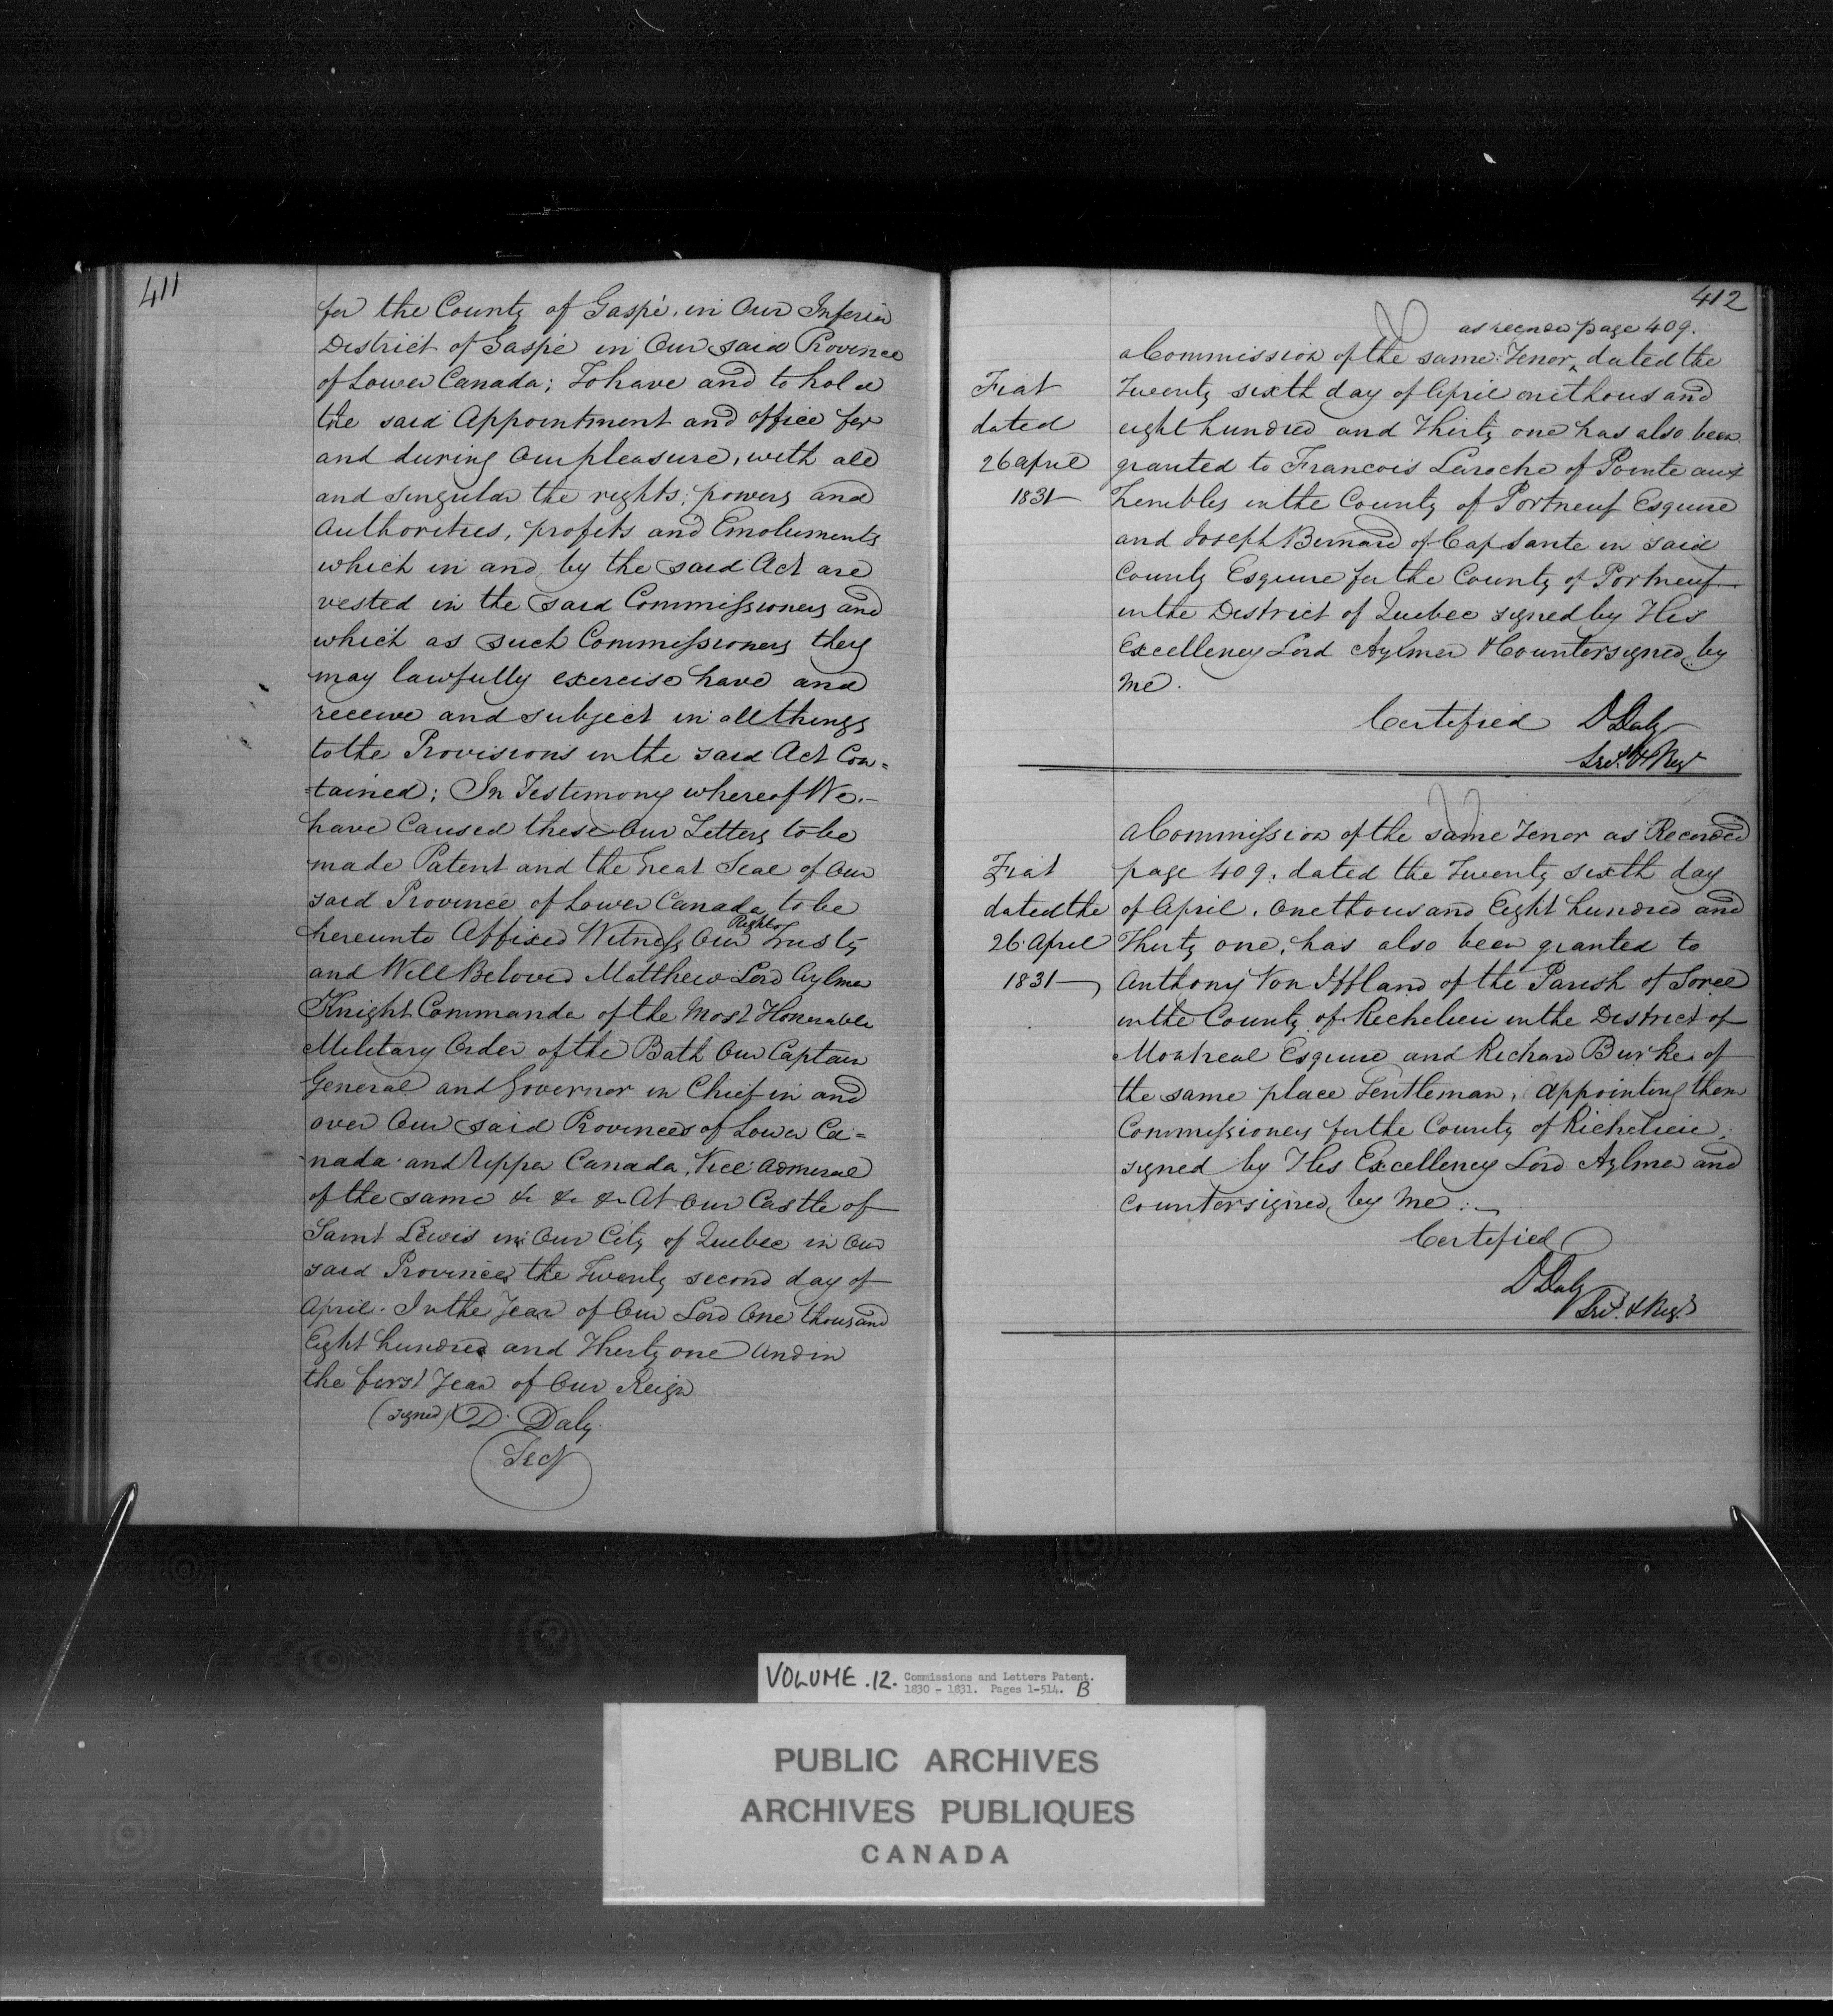 411
for the County of Gaspé, in Our Inferior
District of Gaspé in Our said Province
of Lower Canada; To have and to hold
the said Appointment and office for
and during Our pleasure, with all
and singular the rights, powers and
Authorities, profits and Emoluments
which in and by the said Act are
vested in the said Commissioners and
which as such Commissioners they
may lawfully exercise have and
receive and subject in all things
to the Provisions in the said Act Con=
=tained; In Testimony whereof We.—
have Caused these Our Letters to be
made Patent and the Great Seal of Our
said Province of Lower Canada to be
hereunto Affixed Witness Our Right Trusty
and Well Beloved Matthew Lord Aylmer
Knight Commander of the Most Honorable
Military Order of the Bath Our Captain
General and Governor in Chief in and
over Our said Provinces of Lower Ca=
=nada and Upper Canada, Vice Admiral
of the same &c &c &c At Our Castle of
Saint Lewis in Our City of Quebec in Our
said Province, the Twenty second day of
April. In the Year of Our Lord One thousand
Eight hundred and Thirty one And in
the first Year of Our Reign
(signed) D. Daly.
Secy
412
as recorded page 409.
A Commission of the same Tenor, dated the
Fiat
dated
26 April
1831—
Twenty sixth day of April one thousand
eight hundred and Thirty one has also been
granted to Francois Laroche of Pointe aux
Trembles in the County of Portneuf Esquire
and Joseph Bernard of Cap Sante in said
County Esquire for the County of Portneuf—
in the District of Quebec signed by His
Excellency Lord Aylmer & Countersigned by
me.
Certified D Daly
Secy. & Regr
A Commission of the same Tenor as Recorded
Fiat
dated the
26. April
1831—
page 409, dated the Twenty sixth day
of April, One thousand Eight hundred and
Thirty one, has also been granted to
Anthony Von Iffland of the Parish of Sorel
in the County of Richelieu in the District of
Montreal Esquire and Richard Burke of
the same place Gentleman, Appointing them
Commissioners for the County of Richelieu.
signed by His Excellency Lord Aylmer and
countersigned by me.
Certified
D Daly
Secy. & Regr.
VOLUME .12. Commissions and Letters Patent.
1830 - 1831. Pages 1-514. B
PUBLIC ARCHIVES
ARCHIVES PUBLIQUES
CANADA